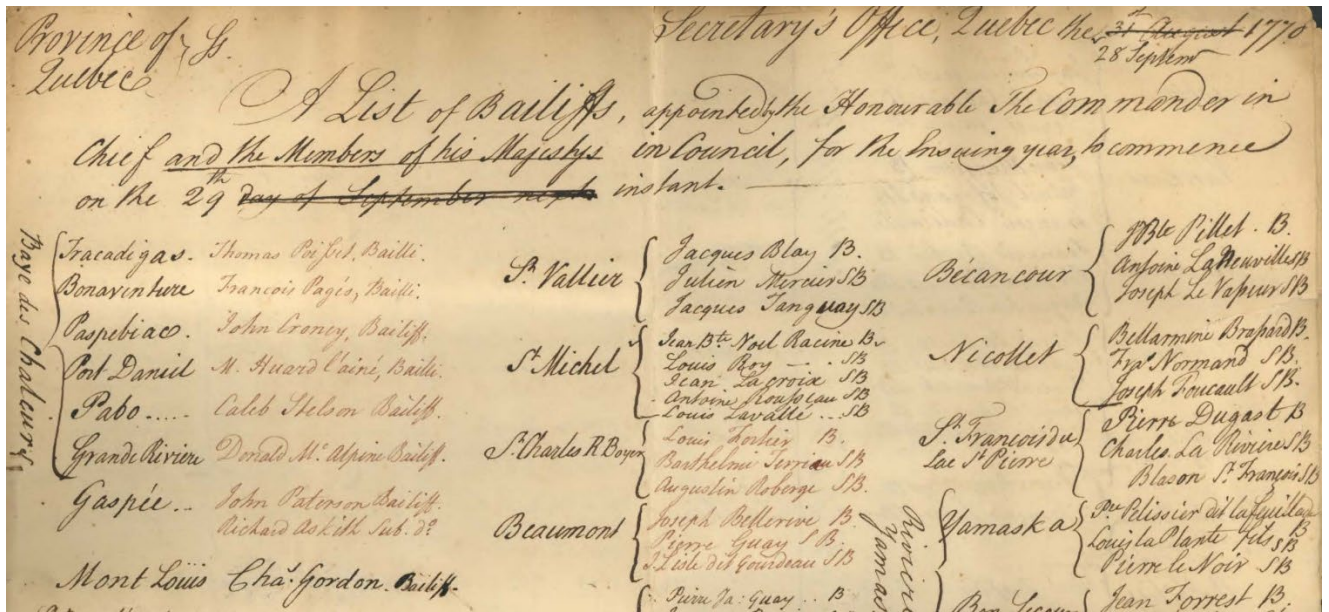 Province of } Ss.
Quebec
Secretary's Office, Quebec the 31st August 1770
28 Septemr
A List of Bailiffs, appointed by the Honourable The Commander in
Chief and the Members of his Majestys in Council, for the Ensuing year, to commence
on the 29th day of September next instant.
Baye des Chaleurs
Tracadigas. Thomas Poisset, Bailli.
Bonaventure François Pagés, Bailli.
Paspebiac. John Croney, Bailiff.
Port Daniel M. Huard l'ainé, Bailli.
Pabo ..... Caleb Stelson Bailiff.
Grande Riviere Donald Mc Alpine Bailiff.
Gaspée .. John Paterson Bailiff.
Richard Askith Sub. do
Mont Louis Chas. Gordon. Bailiff.
St. Vallier
Jacques Blay B.
Julien Mercier SB
Jacques Tanguay SB
St Michel
Jean Bte Noel Racine B.
Louis Roy - - . SB
Jean Lacroix SB
Antoine Rousseau SB
Louis Lavallé .. SB
St. Charles R Boyer
Louis Fortier B.
Barthelmi Terriau SB
Augustin Roberge SB.
Beaumont
Joseph Bellerive B.
Pierre Guay S B.
J. Lisle dit Gourdeau SB
Pierre Ja: Guay .. B
Bécancour
J Bte Pillet. B.
Antoine La Neuville SB
Joseph Le Vasseur SB
Nicollet
Bellarmine Brassard B.
Fra. Normand SB.
Joseph Foucault SB.
St. François du
Lac St Pierre
Pierre Dugast B
Charles La Riviere SB
Blason St. François SB
Riviere
Yamas
Yamaska
Pre Pelissier dit lafeuillade
B
Louis la Plante fils SB
Pierre le Noir SB
Jean Forrest B.